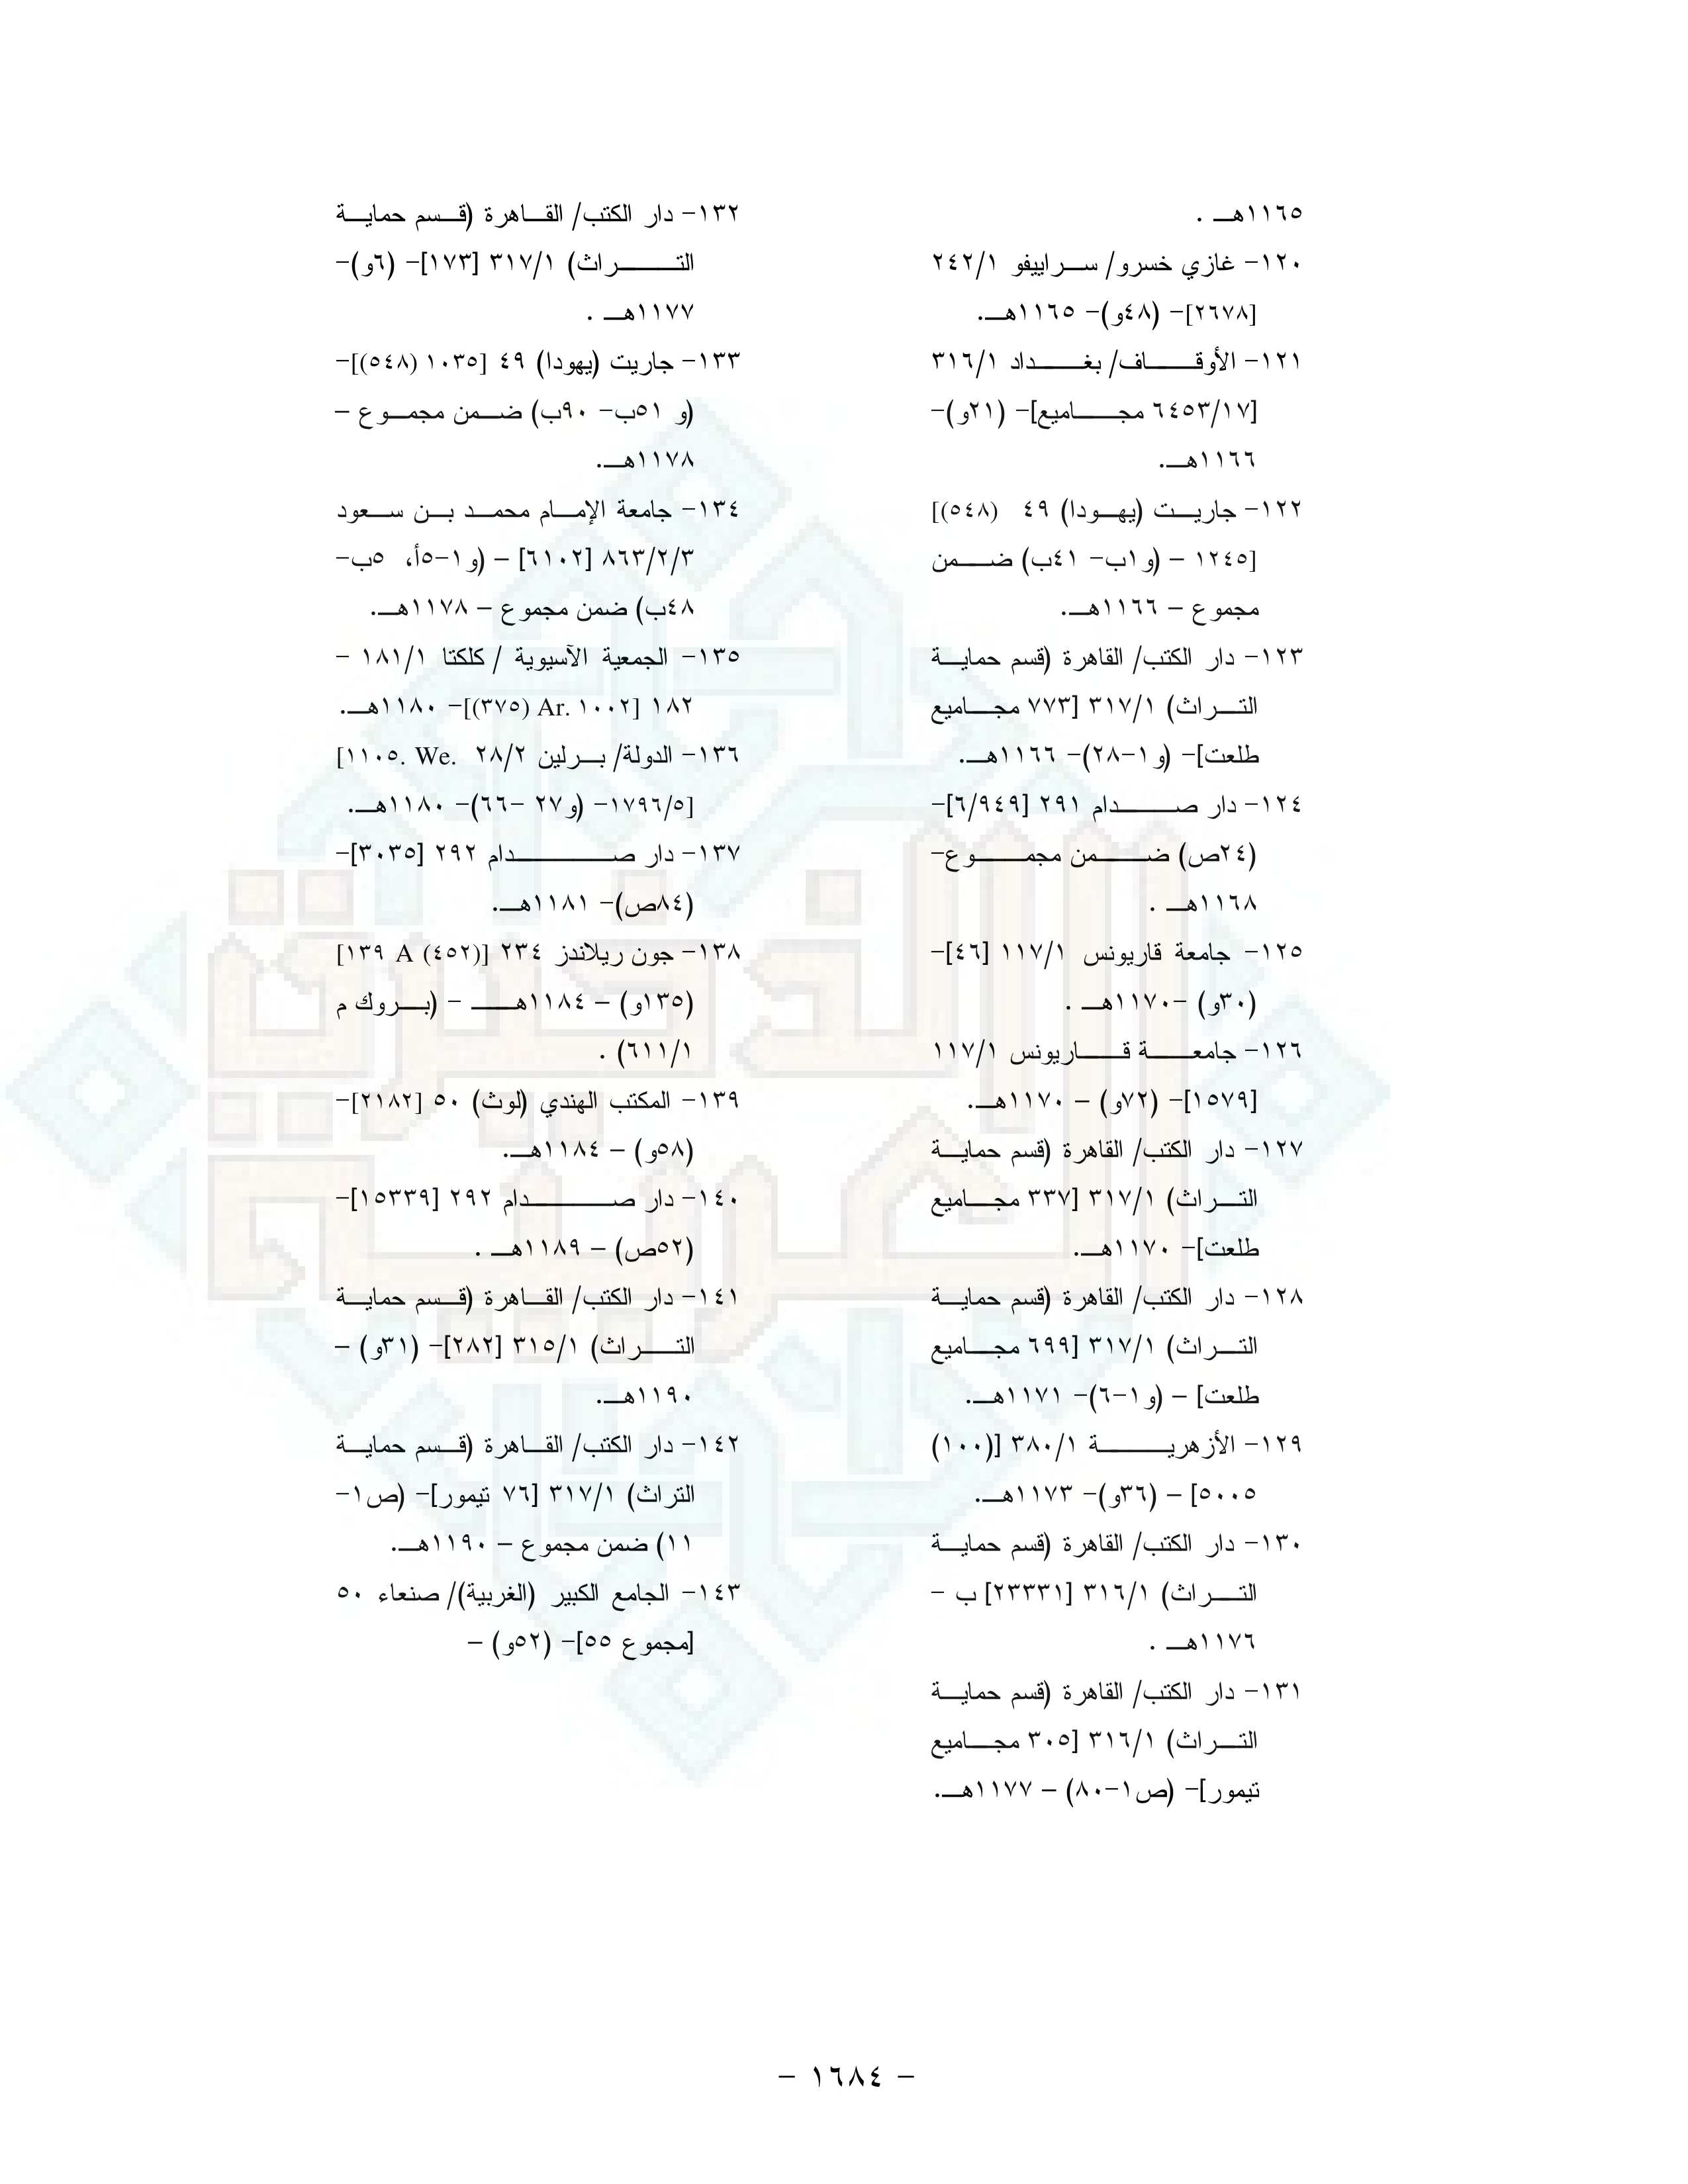 ١١٦٥هـ .
١٢٠- غازي خسرو/ سراييفو ٢٤٢/١
[٢٦٧٨]- (٤٨و)- ١١٦٥هـ.
١٢١- الأوقاف/ بغداد ٣١٦/١
[٦٤٥٣/١٧ مجاميع]- (٢١و)-
١١٦٦هـ.
١٢٢- جاريت (يهودا) ٤٩ (٥٤٨)]
[١٢٤٥ – (و١ب- ٤١ب) ضمن
مجموع – ١١٦٦هـ.
١٢٣- دار الكتب/ القاهرة (قسم حماية
التراث) ٣١٧/١ [٧٧٣ مجاميع
طلعت]- (و١-٢٨)- ١١٦٦هـ.
١٢٤- دار صدام ٢٩١ [٦/٩٤٩]-
(٢٤ص) ضمن مجموع-
١١٦٨هـ .
١٢٥- جامعة قاريونس ١١٧/١ [٤٦]-
(٣٠و) -١١٧٠هـ .
١٢٦- جامعة قاريونس ١١٧/١
[١٥٧٩]- (٧٢و) – ١١٧٠هـ.
١٢٧- دار الكتب/ القاهرة (قسم حماية
التراث) ٣١٧/١ [٣٣٧ مجاميع
طلعت]- ١١٧٠هـ.
١٢٨- دار الكتب/ القاهرة (قسم حماية
التراث) ٣١٧/١ [٦٩٩ مجاميع
طلعت] – (و١-٦)- ١١٧١هـ.
١٢٩- الأزهرية ٣٨٠/١ [(١٠٠)
٥٠٠٥] – (٣٦و)- ١١٧٣هـ.
١٣٠- دار الكتب/ القاهرة (قسم حماية
التراث) ٣١٦/١ [٢٣٣٣١] ب -
١١٧٦هـ .
١٣١- دار الكتب/ القاهرة (قسم حماية
التراث) ٣١٦/١ [٣٠٥ مجاميع
تيمور]- (ص١-٨٠) – ١١٧٧هـ.
١٣٢- دار الكتب/ القاهرة (قسم حماية
التراث) ٣١٧/١ [١٧٣]- (٦و)-
١١٧٧هـ .
١٣٣- جاريت (يهودا) ٤٩ [١٠٣٥ (٥٤٨)]-
(و ٥١ب- ٩٠ب) ضمن مجموع –
١١٧٨هـ.
١٣٤- جامعة الإمام محمد بن سعود
٨٦٣/٢/٣ [٦١٠٢] – (و١-٥أ، ٥ب-
٤٨ب) ضمن مجموع – ١١٧٨هـ.
١٣٥- الجمعية الآسيوية / كلكتا ١٨١/١ -
١٨٢ [Ar. ١٠٠٢ (٣٧٥)]- ١١٨٠هـ.
١٣٦- الدولة/ برلين ٢٨/٢ .We .١١٠٥]
[١٧٩٦/٥- (و٢٧ -٦٦)- ١١٨٠هـ.
١٣٧- دار صدام ٢٩٢ [٣٠٣٥]-
(٨٤ص)- ١١٨١هـ.
١٣٨- جون ريلاندز ٢٣٤ [(٤٥٢) A ١٣٩]
(١٣٥و) – ١١٨٤هـ – (بروك م
٦١١/١) .
١٣٩- المكتب الهندي (لوث) ٥٠ [٢١٨٢]-
(٥٨و) – ١١٨٤هـ.
١٤٠- دار صدام ٢٩٢ [١٥٣٣٩]-
(٥٢ص) – ١١٨٩هـ .
١٤١- دار الكتب/ القاهرة (قسم حماية
التراث) ٣١٥/١ [٢٨٢]- (٣١و) –
١١٩٠هـ.
١٤٢- دار الكتب/ القاهرة (قسم حماية
التراث) ٣١٧/١ [٧٦ تيمور]- (ص١-
١١) ضمن مجموع – ١١٩٠هـ.
١٤٣- الجامع الكبير (الغربية)/ صنعاء ٥٠
[مجموع ٥٥]- (٥٢و) –
الذخيرة
العربية
- ١٦٨٤ -